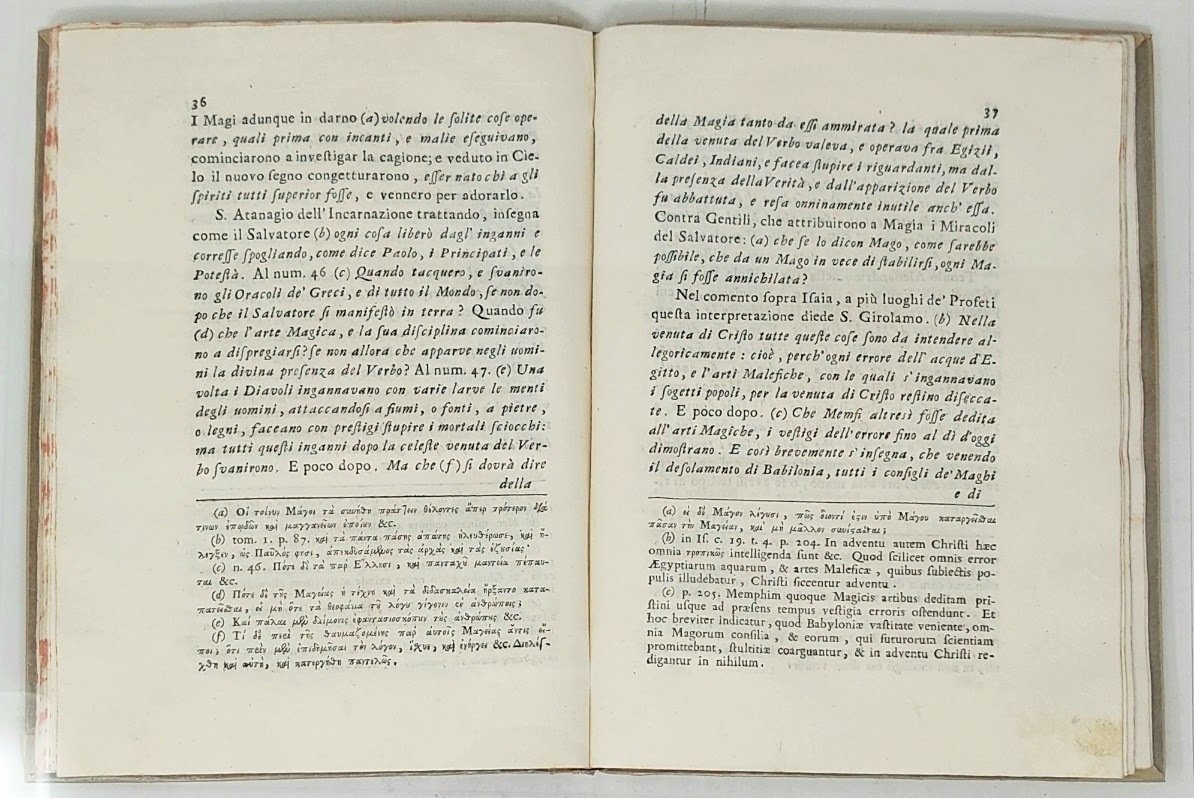 36
I Magi adunque in darno (a) volendo le ſolite coſe ope-
rare, quali prima con incanti, e malie eſeguivano,
cominciarono a inveſtigar la cagione; e veduto in Cie-
lo il nuovo ſegno congetturarono, eſſer nato chi a gli
ſpiriti tutti ſuperior foſſe, e vennero per adorarlo.
S. Atanagio dell'Incarnazione trattando, inſegna
come il Salvatore (b) ogni coſa liberò dagl' inganni e
correſſe ſpogliando, come dice Paolo, i Principati, e le
Poteſtà. Al num. 46 (c) Quando tacquero, e ſvaniro-
no gli Oracoli de' Greci, e di tutto il Mondo, ſe non do-
po che il Salvatore ſi manifeſtò in terra? Quando fu
(d) che l'arte Magica, e la ſua diſciplina cominciaro-
no a diſpregiarſi? ſe non allora che apparve negli uomi-
ni la divina preſenza del Verbo? Al num. 47. (e) Una
volta i Diavoli ingannavano con varie larve le menti
degli uomini, attaccandoſi a fiumi, o fonti, a pietre,
o legni, faceano con preſtigi ſtupire i mortali ſciocchi:
ma tutti queſti inganni dopo la celeſte venuta del Ver-
bo ſvanirono. E poco dopo. Ma che (f) ſi dovrà dire
della
(a) Οἱ τοίνυν Μάγοι τὰ συνήθη πράττειν θέλοντες ἅπερ πρότερον διὰ
τινων ἐπῳδῶν καὶ μαγγανειῶν ἐποίουν &c.
(b) tom. 1. p. 87. καὶ τὰ πάντα πάσης ἀπάτης ἠλευθέρωσε, καὶ ἤ-
λεγξεν, ὡς Παῦλός φησι, ἀπεκδυσάμενος τὰς ἀρχὰς καὶ τὰς ἐξουσίας
(c) n. 46. Πότε δὲ τὰ παρ Ἕλλησι, καὶ πανταχοῦ μαντεῖα πέπαυ-
ται &c.
(d) Πότε δὲ τῆς Μαγείας ἡ τέχνη καὶ τὰ διδασκαλεῖα ἤρξαντο κατα-
πατεῖσθαι, εἰ μὴ ὅτε τὰ θεοφάνια τοῦ λόγου γέγονεν ἐν ἀνθρώποις;
(e) Καὶ πάλαι μὲν δαίμονες ἐφαντασιοσκόπουν τοὺς ἀνθρώπους &c.
(f) Τί δὲ περὶ τῆς θαυμαζομένης παρ αὐτοῖς Μαγείας ἄν τις εἴ-
ποι; ὅτι πρὶν μὲν ἐπιδημῆσαι τὸν λόγον, ἴσχυε, καὶ ἐνήργει &c. Διηλέγ-
χθη καὶ αὐτή, καὶ κατηργήθη παντελῶς.
37
della Magia tanto da eſſi ammirata? la quale prima
della venuta del Verbo valeva, e operava fra Egizii,
Caldei, Indiani, e facea ſtupire i riguardanti, ma dal-
la preſenza della Verità, e dall'apparizione del Verbo
fu abbattuta, e reſa onninamente inutile anch' eſſa.
Contra Gentili, che attribuirono a Magia i Miracoli
del Salvatore: (a) che ſe lo dicon Mago, come ſarebbe
poſſibile, che da un Mago in vece di ſtabilirſi, ogni Ma-
gia ſi foſſe annichilata?
Nel comento ſopra Iſaia, a più luoghi de' Profeti
queſta interpretazione diede S. Girolamo. (b) Nella
venuta di Criſto tutte queſte coſe ſono da intendere al-
legoricamente: cioè, perch'ogni errore dell' acque d'E-
gitto, e l'arti Malefiche, con le quali s'ingannavano
i ſogetti popoli, per la venuta di Criſto reſtino diſecca-
te. E poco dopo. (c) Che Memfi altresì foſſe dedita
all'arti Magiche, i veſtigi dell'errore fino al dì d'oggi
dimoſtrano. E così brevemente s'inſegna, che venendo
il deſolamento di Babilonia, tutti i conſigli de' Maghi
e di
(a) εἰ δὲ Μάγον λέγουσι, πῶς οἷόντι ἐςιν ὑπὸ Μάγου καταργεῖσθαι
πᾶσαν τὴν Μαγείαν, καὶ μὴ μᾶλλον συνίςασθαι;
(b) in Iſ. c. 19. t. 4. p. 204. In adventu autem Chriſti hæc
omnia τροπικῶς intelligenda ſunt &c. Quod ſcilicet omnis error
Ægyptiarum aquarum, & artes Maleficæ, quibus ſubiectis po-
pulis illudebatur, Chriſti ſiccentur adventu.
(c) p. 205. Memphim quoque Magicis artibus deditam pri-
ſtini uſque ad præſens tempus veſtigia erroris oſtendunt. Et
hoc breviter indicatur, quod Babyloniæ vaſtitate veniente, om-
nia Magorum conſilia, & eorum, qui futurorum ſcientiam
promittebant, ſtultitiæ coarguantur, & in adventu Chriſti re-
digantur in nihilum.